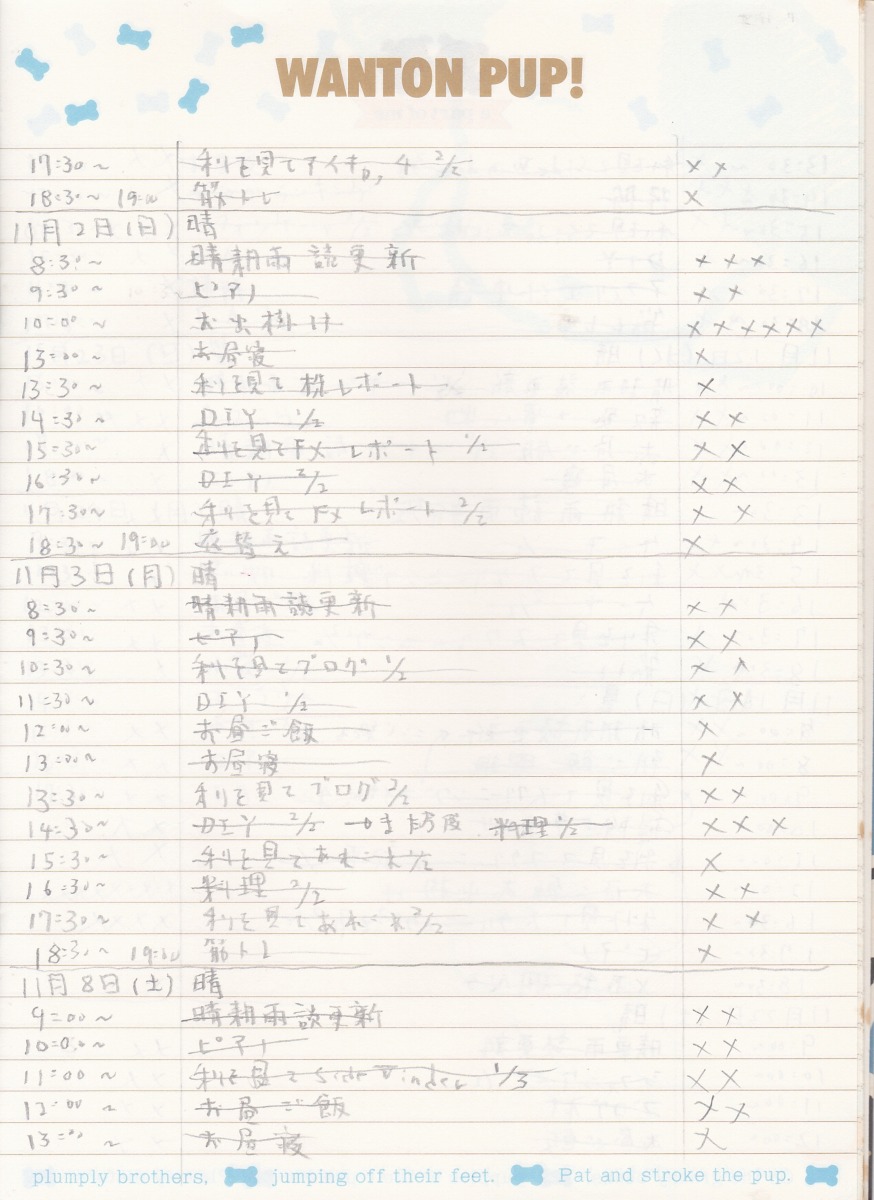 WANTON PUP!
17:30~ 利を見てアイキ 4 2/2 ××
18:30~ 19:00 筋トレ ×
11月2日(日) 晴
8:30~ 晴耕雨読更新 ×××
9:30~ ピアノ ××
10:00~ お出掛け ××××××
13:00~ お昼寝 ×
13:30~ 利を見て株レポート ×
14:30~ DIY 1/2 ××
15:30~ 利を見てFXレポート 1/2 ××
16:30~ DIY 2/2 ××
17:30~ 利を見てFXレポート 2/2 ××
18:30~ 19:00 衣替え ×
11月3日(月) 晴
8:30~ 晴耕雨読更新 ××
9:30~ ピアノ ××
10:30~ 利を見てブログ 1/2 ××
11:30~ DIY 1/2 ××
12:00~ お昼ご飯 ×
13:00~ お昼寝 ×
13:30~ 利を見てブログ 2/2 ××
14:30~ DIY 2/2 料理 1/2 ×××
15:30~ 利を見てあれこれ 1/2 ×
16:30~ 料理 2/2 ××
17:30~ 利を見てあれこれ 2/2 ××
18:30~ 19:00 筋トレ ×
11月8日(土) 晴
9:00~ 晴耕雨読更新 ××
10:00~ ピアノ ××
11:00~ 利を見て 1/3 ××
12:00~ お昼ご飯 ××
13:00~ お昼寝 ×
plumply brothers, jumping off their feet. Pat and stroke the pup.